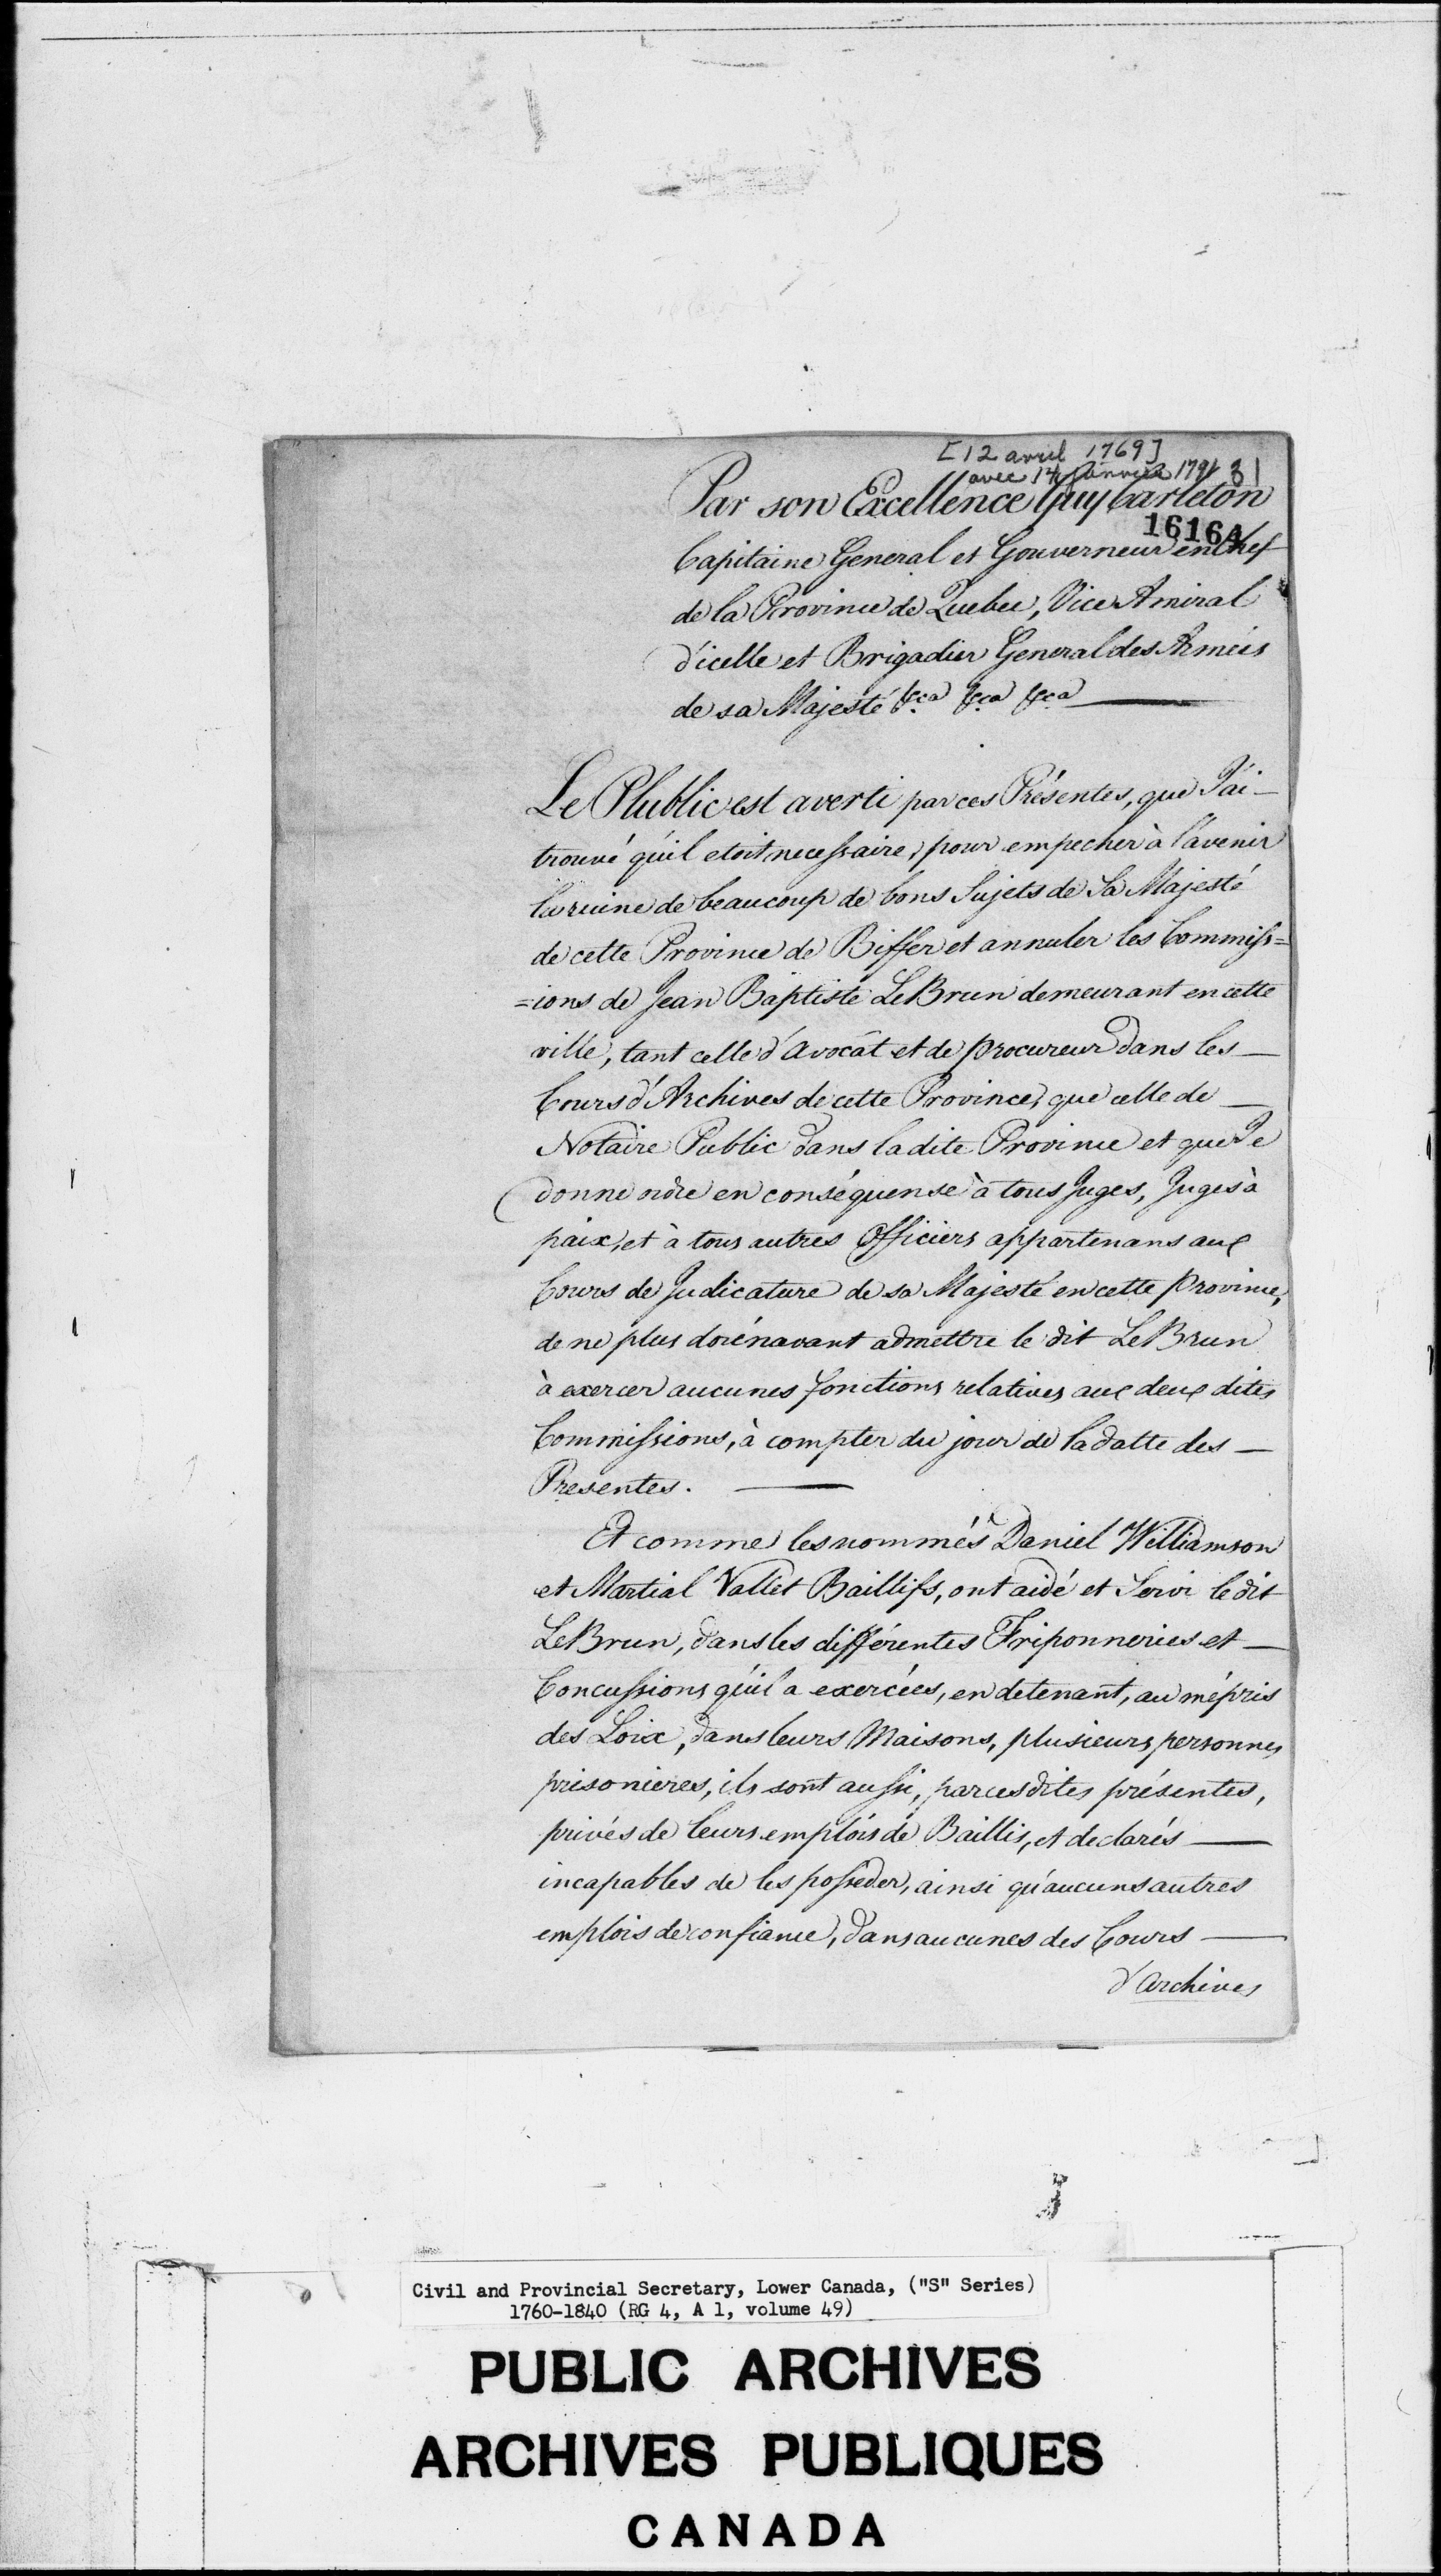 [12 avril 1769]
avec 14 Janvier 1791 31
Par son Excellence Guy Carleton
16164
Capitaine General et Gouverneur en Chef
de la Province de Quebec, Vice Amiral
d'icelle et Brigadier General des Armées
de sa Majesté &ca &ca &ca
Le Plublic est averti par ces Présentes, que J'ai
trouvé qu'il etoit necessaire, pour empecher à l'avenir
la ruine de beaucoup de bons Sujets de Sa Majesté
de cette Province de Biffer et annuler les Commiss=
=ions de Jean Baptiste LeBrun demeurant en cette
ville, tant celle d'Avocât et de procureur dans les
Cours d'Archives de cette Province, que celle de
Notaire Public dans ladite Province et que Je
donne ordre en conséquense à tous Juges, Juges à
paix, et à tous autres Officiers appartenans aux
Cours de Judicature de sa Majesté en cette province,
de ne plus dorénavant admettre le dit LeBrun
à exercer aucunes fonctions relatives aux deux dites
Commissions, à compter du jour de la datte des
Presentes.
Et comme les nommés Daniel Williamson
et Martial Vallet Baillifs, ont aidé et Servi le dit
LeBrun, dans les différentes Friponneries et
Concussions qu'il a exercées, en detenant, au mépris
des Loix, dans leurs Maisons, plusieurs personnes
prisonieres, ils sont aussi, par ces dites présentes,
privés de leurs emplois de Baillis, et declarés
incapables de les posseder, ainsi qu'aucuns autres
emplois de confiance, dans aucunes des Cours
d'Archives
Civil and Provincial Secretary, Lower Canada, ("S" Series)
1760-1840 (RG 4, A 1, volume 49)
PUBLIC ARCHIVES
ARCHIVES PUBLIQUES
CANADA